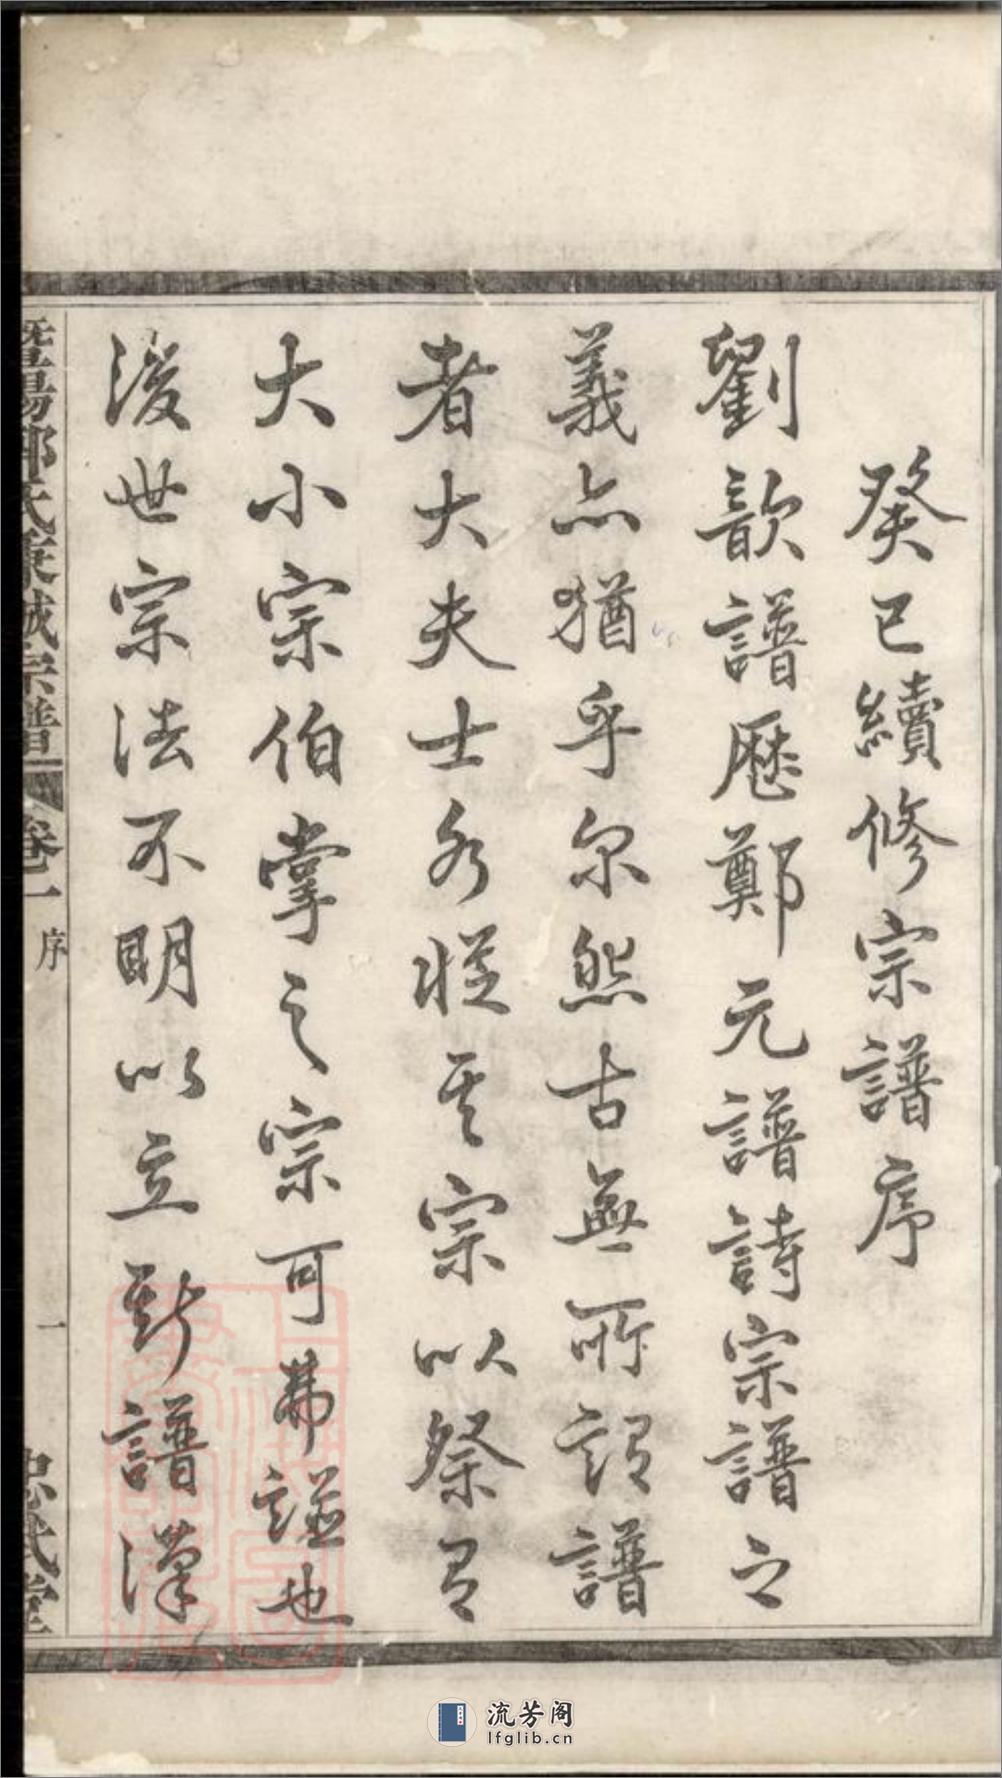 癸巳續修宗譜序
劉歆譜歷鄭元譜詩宗譜之
義亦猶乎尔然古無所謂譜
者大夫士各從其宗以祭有
大小宗伯掌之宗可弗譜也
後世宗法不明以立新譜漢
暨陽鄒氏 誠宗譜
卷一
序
一
忠 堂
流芳阁
lfglib.cn